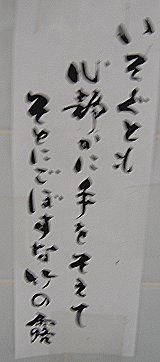 いそぐとも
心静かに手をそえて
そとにこぼすな竹の露